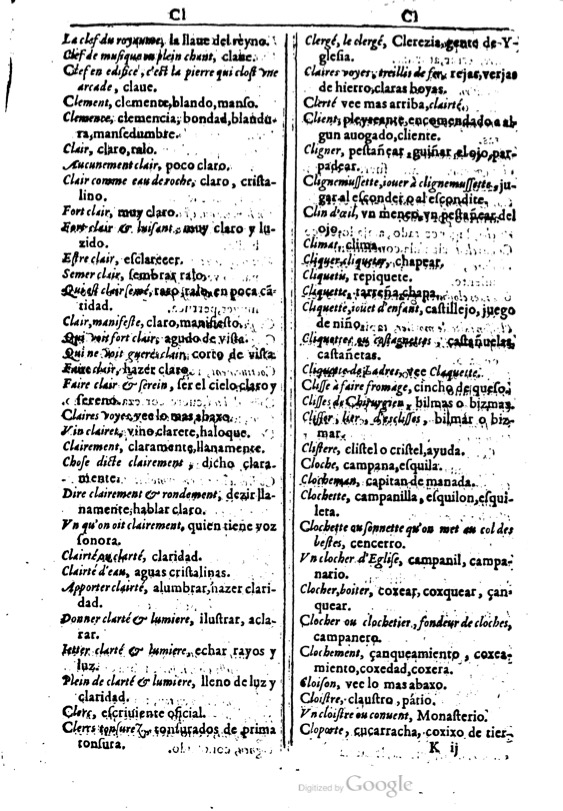 Cl
La clef du royaume, la llaue del reyno.
Clef de musique ou plein chant, claue.
Clef en edifice, c'est la pierre qui clost vne
arcade, claue.
Clement, clemente, blando, manso.
Clemence, clemencia, bondad, blandu-
ra, mansedumbre.
Clair, claro, ralo.
Aucunement clair, poco claro.
Clair comme eau de roche, claro, crista-
lino.
Fort clair, muy claro.
Fort clair & luisant, muy claro y lu-
zido.
Estre clair, esclarecer.
Semer clair, sembrar ralo.
Qui est clair semé, raso, ralo, en poca cã-
tidad.
Clair, manifeste, claro, manifiesto.
Qui voit fort clair, agudo de vista.
Qui ne voit gueres clair, corto de vista
Faire clair, hazer claro.
Faire clair & serein, ser el cielo claro y
sereno.
Claires voyes, vee lo mas abaxo.
Vin clairet, vino clarete, haloque.
Clairement, claramente, llanamente.
Chose dicte clairement, dicho clara-
mente.
Dire clairement & rondement, dezir lla-
namente, hablar claro.
Vn qu'on oit clairement, quien tiene voz
sonora.
Clairté ou clarté, claridad.
Clairté d'eau, aguas cristalinas.
Apporter clairté, alumbrar, hazer clari-
dad.
Donner clarté & lumiere, ilustrar, acla-
rar.
Ietter clarté & lumiere, echar rayos y
luz.
Plein de clarté & lumiere, lleno de luz y
claridad.
Clerc, escriuiente oficial.
Clercs tonsurez, tonsurados de prima
tonsura.
Cl
Clergé, le clergé, Clerezia, gente de Y-
glesia.
Claires voyes, treillis de fer, rejas, verjas
de hierro, claras boyas.
Clerté vee mas arriba, clairté.
Client, pleyteante, encomendado a al-
gun auogado, cliente.
Cligner, pestañear, guiñar el ojo, par-
padear.
Clignemussette, iouer à clignemussette, ju-
gar al esconder, o al escondite.
Clin d'œil, vn meneo, vn pestañear del
ojo.
Climat, clima.
Cliquer, cliqueter, chapear.
Cliquetis, repiquete.
Cliquette, tarreña, chapa.
Cliquette, iouet d'enfant, castillejo, juego
de niño.
Cliquettes ou castagnettes, castañuelas,
castañetas.
Cliquette de Ladres, vee Claquette.
Clisse à faire fromage, cincho de queso.
Clisses de Chirurgien, bilmas o bizmas.
Clisser, lier, d'esclisses, bilmar o biz-
mar.
Clistere, clistel o cristel, ayuda.
Cloche, campana, esquila.
Clocheman, capitan de manada.
Clochette, campanilla, esquilon, esqui-
leta.
Clochette ou sonnette qu'on met au col des
bestes, cencerro.
Vn clocher d'Eglise, campanil, campa-
nario.
Clocher, boiter, coxear, coxquear, çan-
quear.
Clocher ou clochetier, fondeur de cloches,
campanero.
Clochement, çanqueamiento, coxea-
miento, coxedad, coxera.
Cloison, vee lo mas abaxo.
Cloistre, claustro, pátio.
Vn cloistre ou conuent, Monasterio.
Cloporte, cucarracha, coxixo de tier-
K ij
Digitized by Google